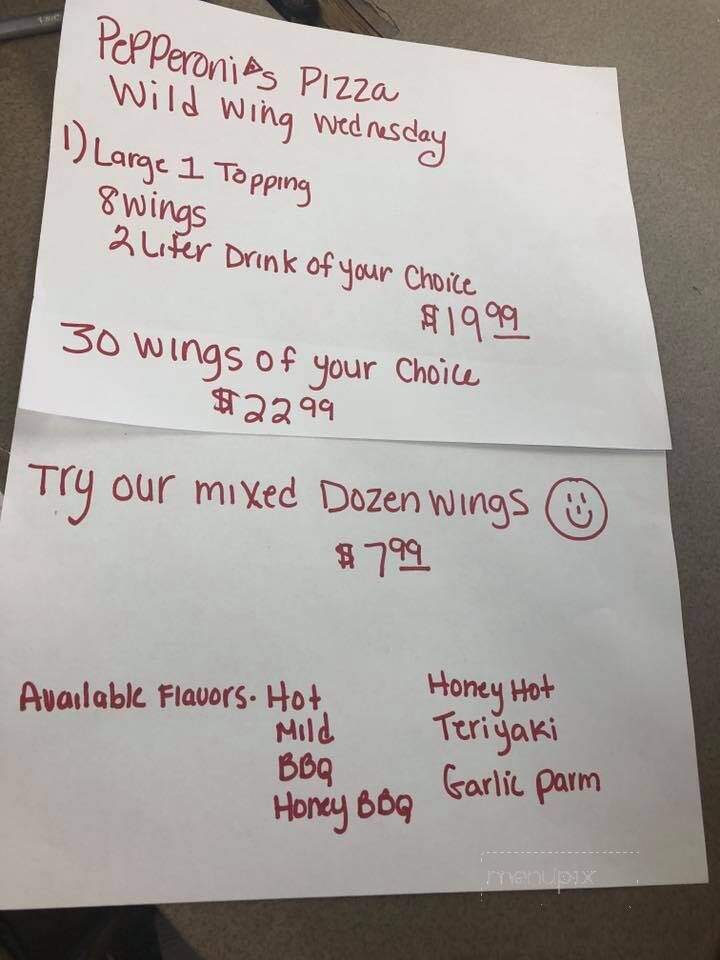 Pepperoni's Pizza
Wild Wing Wednesday
1) Large 1 Topping
8 wings
2 Liter Drink of your Choice
$19.99
30 wings of your Choice
$22.99
Try our mixed Dozen wings
$7.99
Available Flavors- Hot
Mild
BBQ
Honey BBQ
Honey Hot
Teriyaki
Garlic parm
menupix